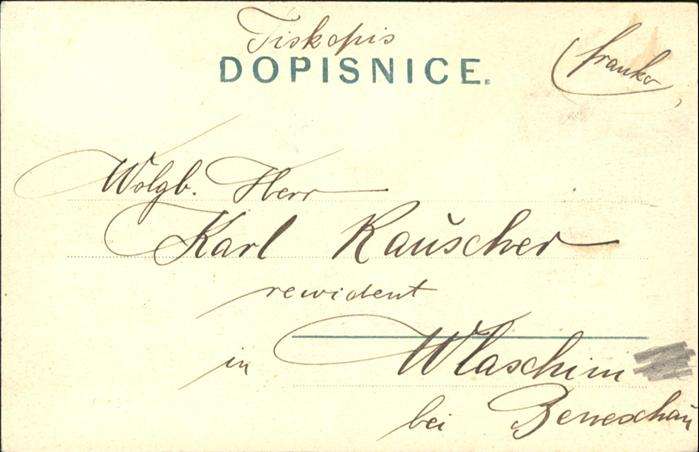 Tiskopis
DOPISNICE.
franko
Wolgb. Herr
Karl Rauscher
rewident
in Wlaschim
bei Beneschau